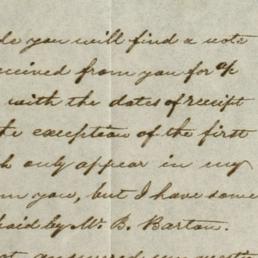 de you will find a note
ceived from you for a/c
with the dates of receipt
he exception of the first
h only appear in my
m you, but I have some
paid by Mr. B. Barton.